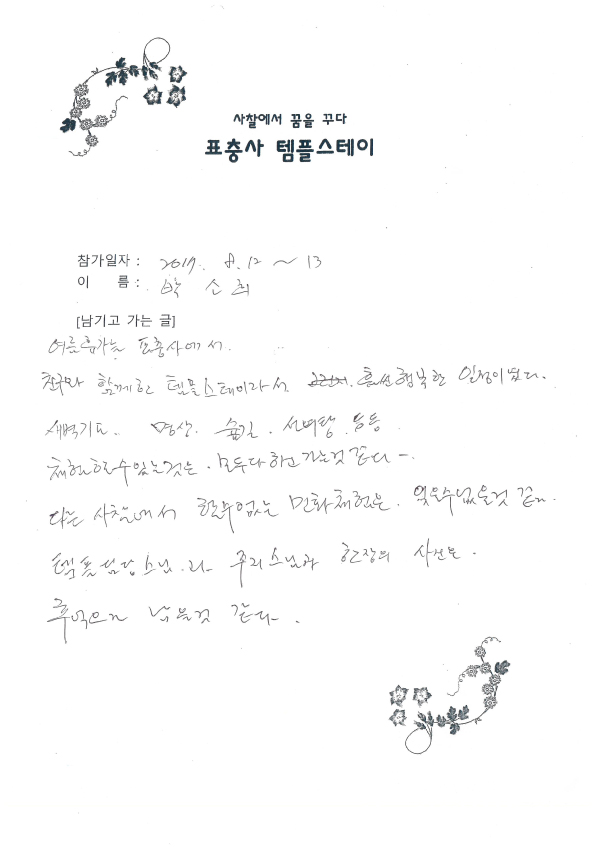 사찰에서 꿈을 꾸다
표충사 템플스테이
참가일자 : 2019. 8. 12 ~ 13
이 름 : 박 소희
[남기고 가는 글]
여름휴가는 표충사에서.
친구와 함께한 템플스테이라서 훨씬 행복한 일정이 됐다.
새벽기도. 명상. 숲길. 선녀탕. 등등
체험할수있는것은. 모두다하고가는것 같다~.
다른 사찰에서 할수없는 민화체험은. 잊을수없을것 같다.
템플담당스님. 과 주지스님과 한장의 사진은.
추억으로 남을것 같다.